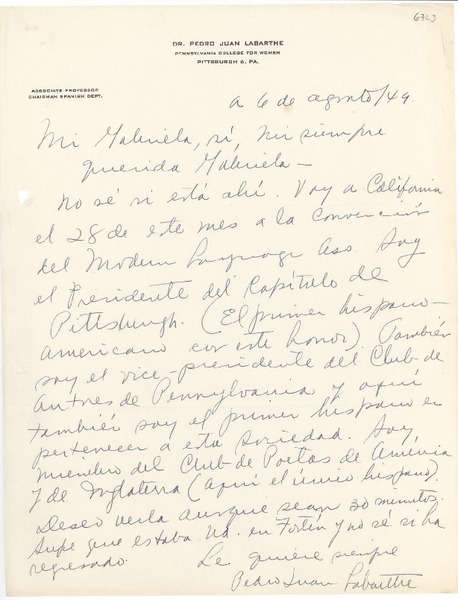 6723
DR. PEDRO JUAN LABARTHE
PENNSYLVANIA COLLEGE FOR WOMEN
PITTSBURGH 6, PA.
ASSOCIATE PROFESSOR
CHAIRMAN SPANISH DEPT.
a 6 de agosto/49.
Mi Gabriela, sí, mi siempre
querida Gabriela —
No sé si está ahí. Voy a California
el 28 de este mes a la Convención
del Modern Language Aso. Soy
el Presidente del Capítulo de
Pittsburgh. (El primer hispano-
americano con este honor). También
soy el vice-presidente del Club de
Autores de Pennsylvania y aquí
también soy el primer hispano en
pertenecer a esta sociedad. Soy
miembro del Club de Poetas de América
y de Inglaterra (aquí el único hispano).
Deseo verla aunque sean 30 minutos.
Supe que estaba Ud. en Fortín y no sé si ha
regresado.
Le quiere siempre
Pedro Juan Labarthe